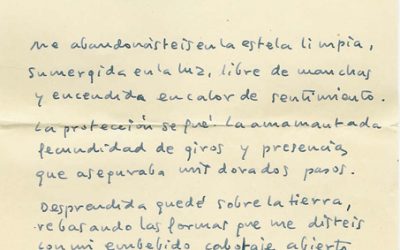 Me abandonásteis en la estela limpia,
sumergida en la luz, libre de manchas
y encendida en calor de sentimiento.
La protección se fué. La amamantada
fecundidad de giros y presencia,
que aseguraba mis dorados pasos.
Desprendida quedé sobre la tierra,
rebasando las formas que me disteis
con mi embebido cabotaje abierto